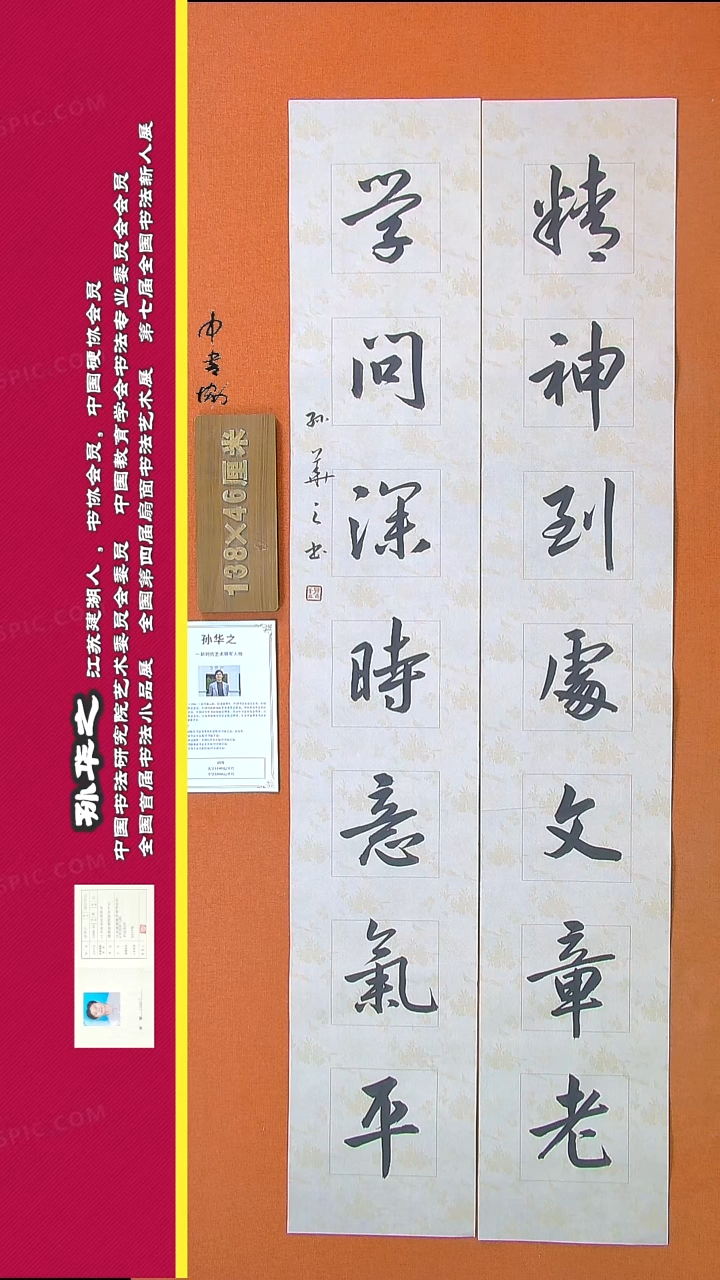 精神到處文章老
学问深時意氣平
孙華之书
中书协
138×46厘米
孙华之
孙华之 江苏建湖人，书协会员，中国硬协会员
中国书法研究院艺术委员会委员 中国教育学会书法专业委员会会员
全国首届书法小品展 全国第四届扇面书法艺术展 第七届全国书法新人展